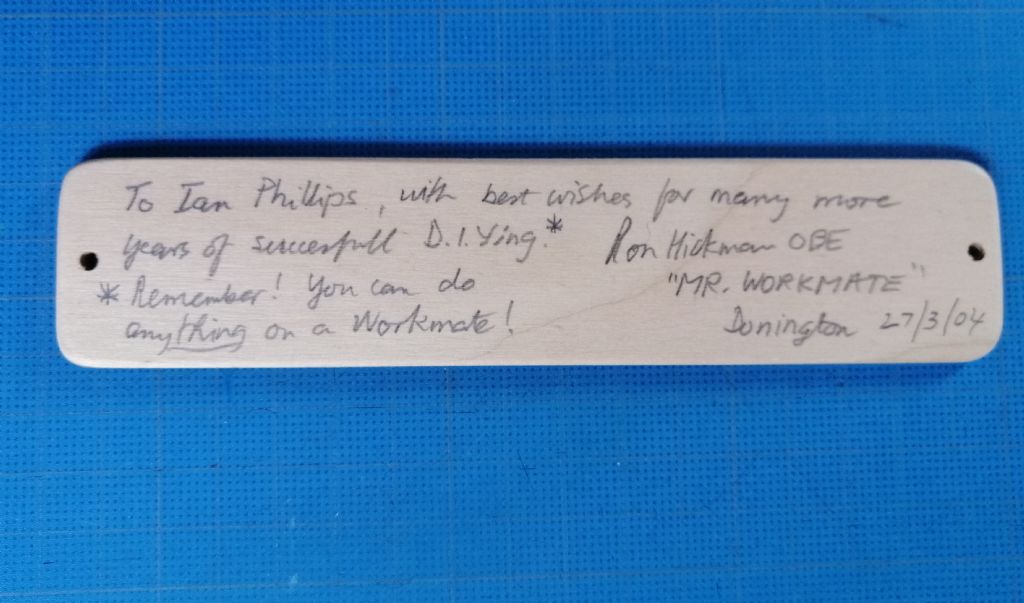 To Ian Phillips, with best wishes for many more
years of succesfull D.I.Ying.* Ron Hickman OBE
* Remember! You can do "MR. WORKMATE"
anything on a Workmate! Donington 27/3/04